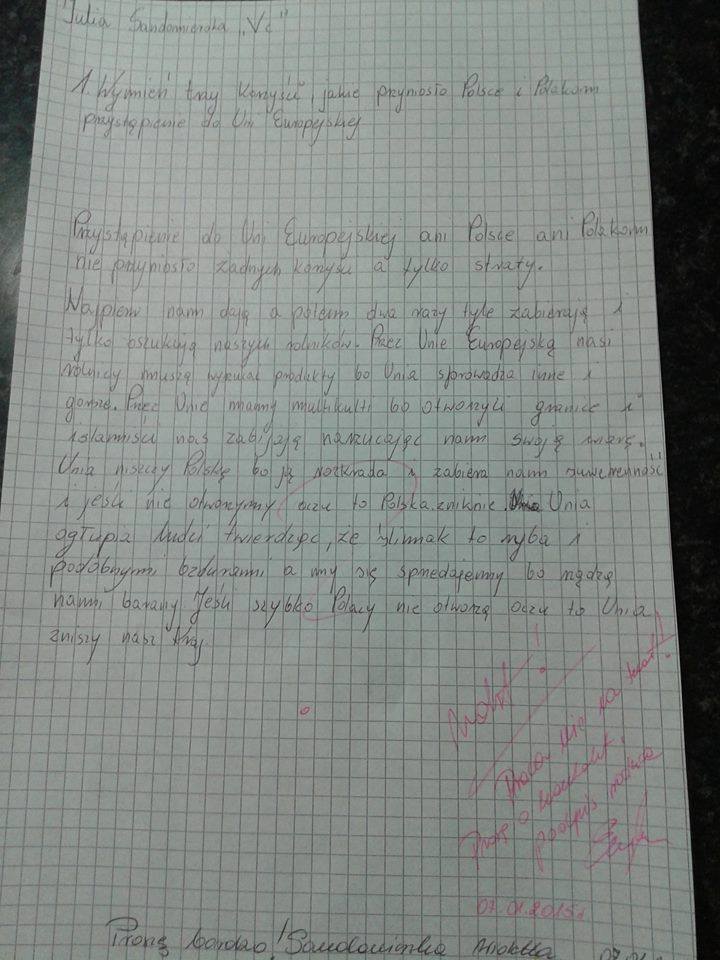 Julia Sandomierska "Vc"
1. Wymień trzy korzyści, jakie przyniosło Polsce i Polakom
przystąpienie do Uni Europejskiej
Przystąpienie do Uni Europejskiej ani Polsce ani Polakom
nie przyniosło żadnych korzyści a tylko straty.
Najpierw nam dają a potem dwa razy tyle zabierają i
tylko oszukują naszych rolników. Przez Unie Europejską nasi
rolnicy muszą wyrzucać produkty bo Unia sprowadza inne i
gorsze. Przez Unie mamy multikulti bo otworzyli granice i
islamiści nas zabijają narzucając nam swoją wiarę.
Unia niszczy Polskę bo ją rozkrada i zabiera nam suwerenność
i jeśli nie otworzymy oczu to Polska zniknie. Unia
ogłupia ludzi twierdząc, że ślimak to ryba i
podobnymi bzdurami a my się sprzedajemy bo rządzą
nami barany Jeśli szybko Polacy nie otworzą oczu to Unia
zniszy nasz kraj.
Praca nie na temat!
Proszę o
podpis rodzica
07.01.2015r
Proszę bardzo! Sandomierska 07.01